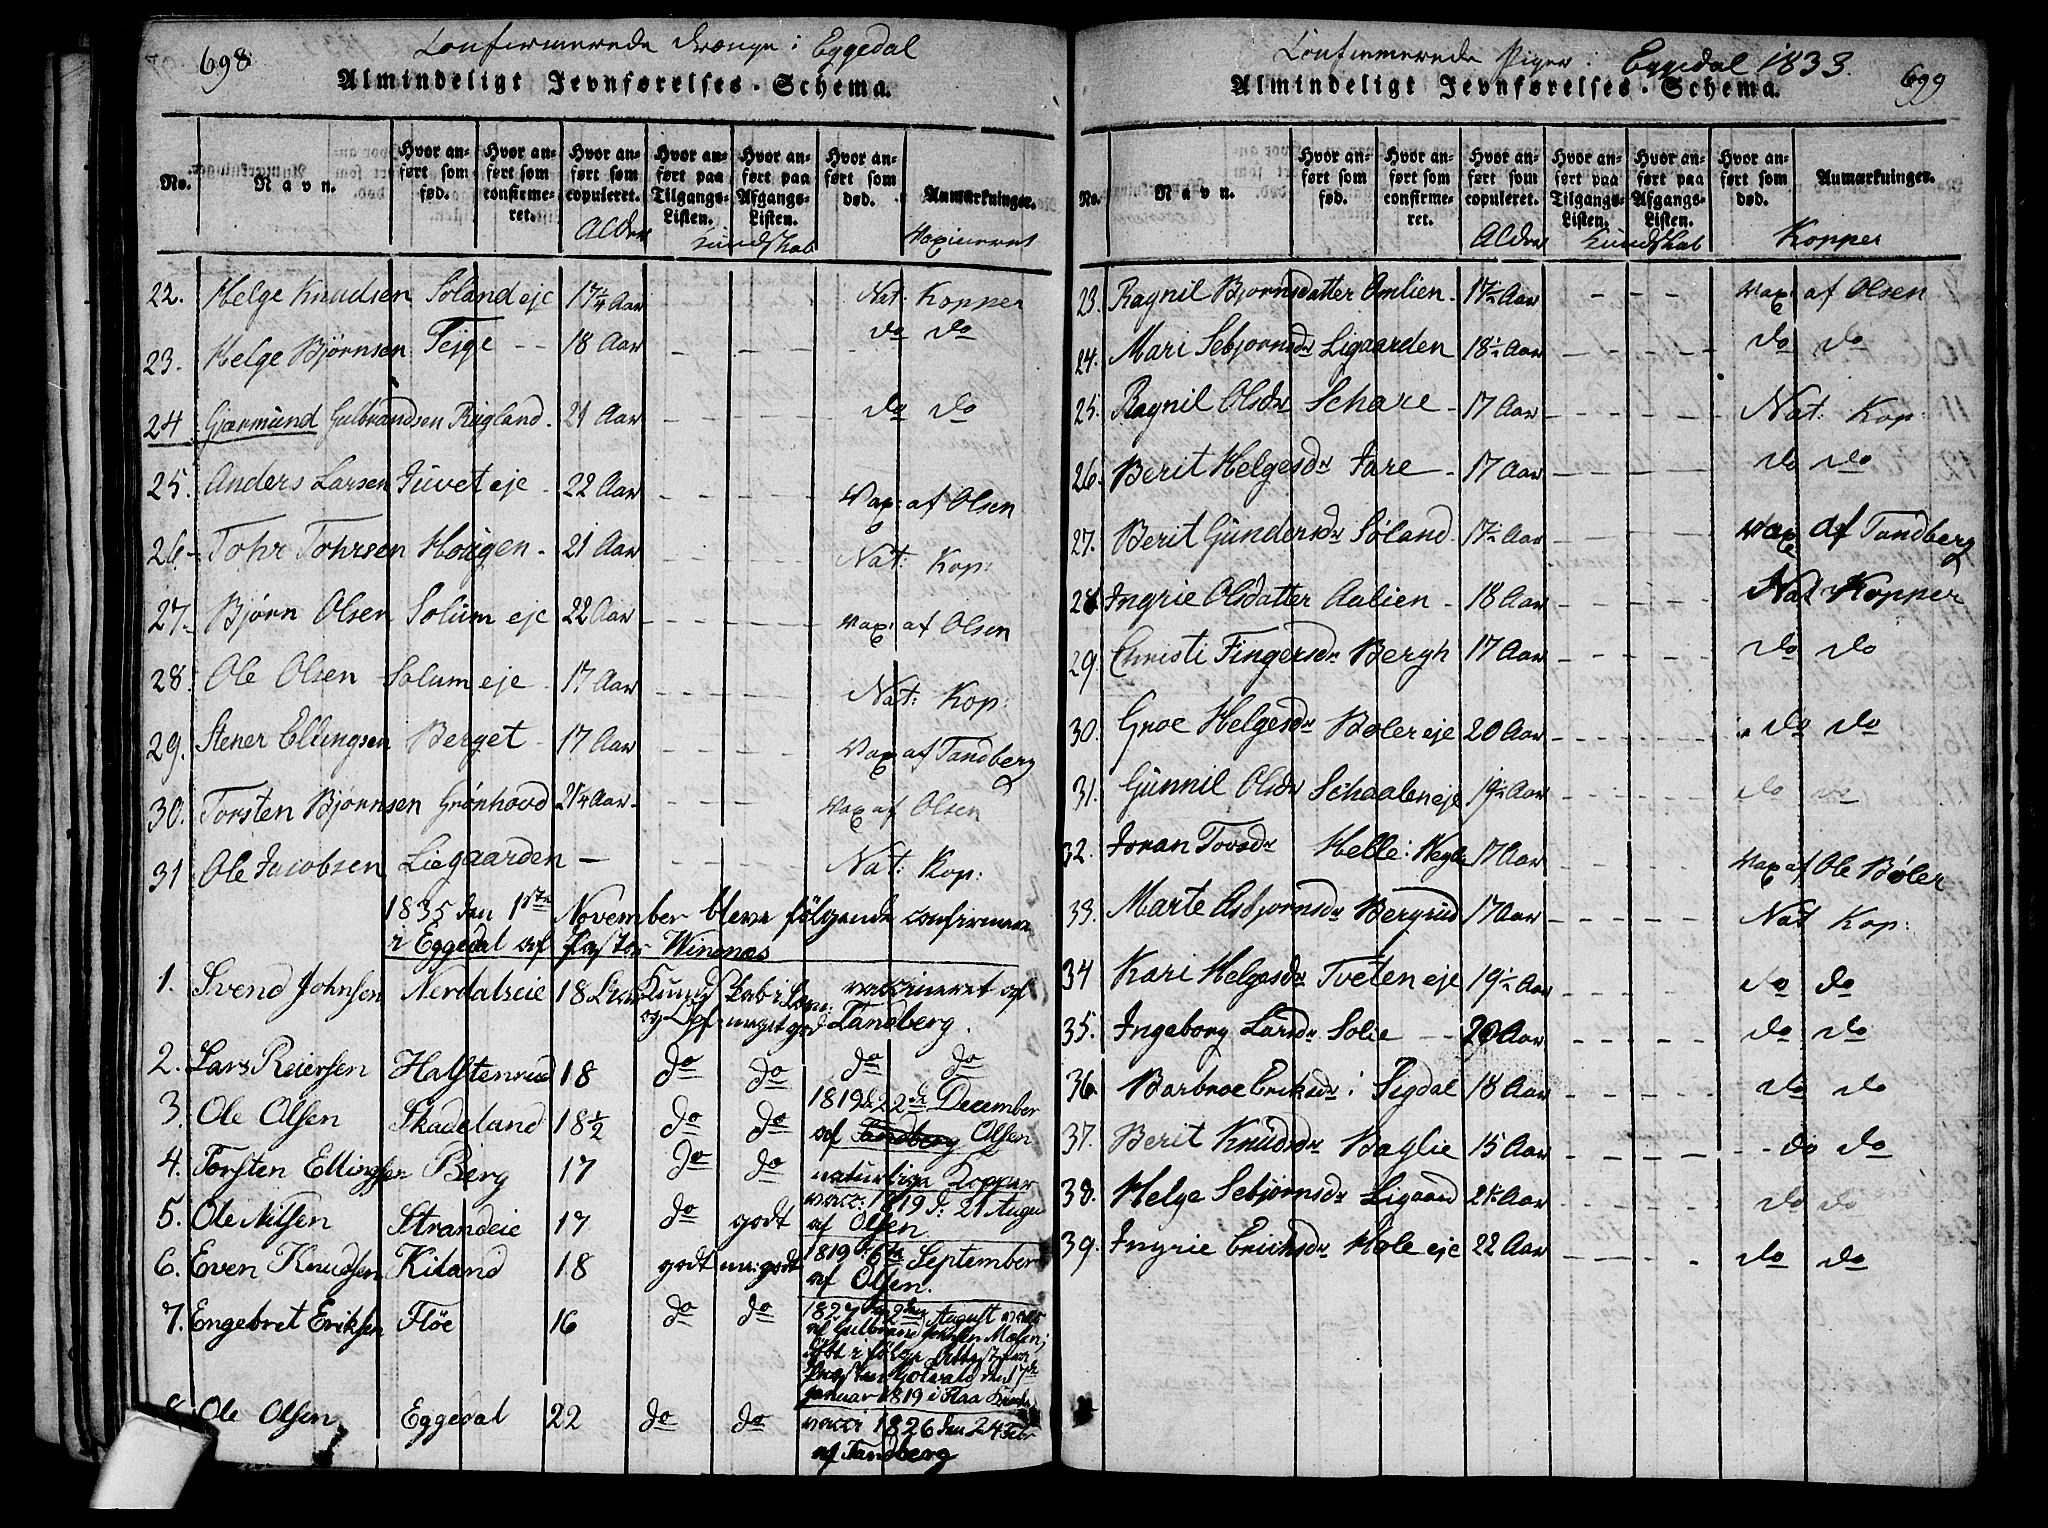 698
Confirmerede Drænge i Eggedal
Almindeligt Jevnførelses-Schema.
No. Navn. Hvor anført som fød. Hvor anført som confirmeret. Hvor anført som copuleret. Hvor anført paa Tilgangs-Listen. Hvor anført paa Afgangs-Listen. Hvor anført som død. Anmærkninger.
Alder Kundskab Vaxineret
22. Helge Knudsen Søland eje 17 1/4 Aar Nat: Kopper
23. Helge Bjørnsen Tejge 18 Aar do do
24 Gjærmund Gulbrandsen Rugland. 21 Aar do do
25. Anders Larsen Juvet eje 22 Aar Vax: af Olsen
26. Tohr Tohrsen Hougen 21 Aar Nat: Kop:
27. Bjørn Olsen Solum eje 22 Aar Vax: af Olsen
28. Ole Olsen Solum eje 17 Aar Nat: Kop:
29. Stener Ellingsen Berget 17 Aar Vax af Tandberg
30. Torsten Bjørnsen Grønhovd 21 1/4 Aar Vax af Olsen
31 Ole Jacobsen Liegaarden Nat: Kop:
1835 den 1ste November bleve følgende confirmere
i Eggedal af Pastor
1. Svend Johnsen Nerdalseie 18 Kundskab i vaccineret af
og meget god Tandberg.
2. Lars Reiersen Halstenrud 18 do do do do
3. Ole Olsen Skadeland 18 1/2 do do 1819 d 22de December
af Tandberg Olsen
4. Torsten Ellingsen Berg 17 do do naturlige Kopper
5. Ole Nilsen Strandeie 17 do godt vacc: 1819 d: 21 Augu
af Olsen
6. Even Knudsen Kiland 18 godt m: godt 1819 d: 6te September
af Olsen.
7. Engebret Eriksen Fløe 16 do do 1827 den 2den August vacc
af Gulbrand Moen;
født i følge Attest fra
Januar 1819 i Flaa
8. Ole Olsen Eggedal 22 do do vacci 1826 den 24 Febr
af Tandberg
Confirmerede Piger i Eggedal 1833.
699
Almindeligt Jevnførelses-Schema.
No. Navn. Hvor anført som fød. Hvor anført som confirmeret. Hvor anført som copuleret. Hvor anført paa Tilgangs-Listen. Hvor anført paa Afgangs-Listen. Hvor anført som død. Anmærkninger.
Alder Kundskab Kopper
23. Ragnil Bjørnsdatter Omlien 17 1/2 Aar Vax: af Olsen
24. Mari Sebjørnsdr Ligaarden 18 1/2 Aar do do
25. Ragnil Olsdr Schare 17 Aar Nat: Kop:
26. Berit Helgesdr Fare 17 Aar do do
27. Berit Gundersdr Søland 17 1/2 Aar Vax af Tandberg
28 Ingrie Olsdatter Aalien 18 Aar Nat Kopper
29. Christi Fingersdr Bergh 17 Aar do do
30. Groe Helgesdr Bøler eje 20 Aar do do
31. Gunnil Olsdr Schaalen eje 19 1/2 Aar do do
32. Joran Tovsdr Helle i 17 Aar Vax af Ole Bøler
33. Marte Asbjørnsdr Bergsud 17 Aar Nat Kop:
34 Kari Helgesdr Tveten eje 19 1/2 Aar do do
35. Ingeborg Larsdr Solie 20 Aar do do
36. Barbroe Eriksdr i Sigdal 18 Aar do do
37. Berit Knudsdr Baglie 15 Aar do do
38. Helge Sebjørnsdr Ligaard 21 1/2 Aar do do
39. Ingrie Eriksdr Hole eje 22 Aar do do